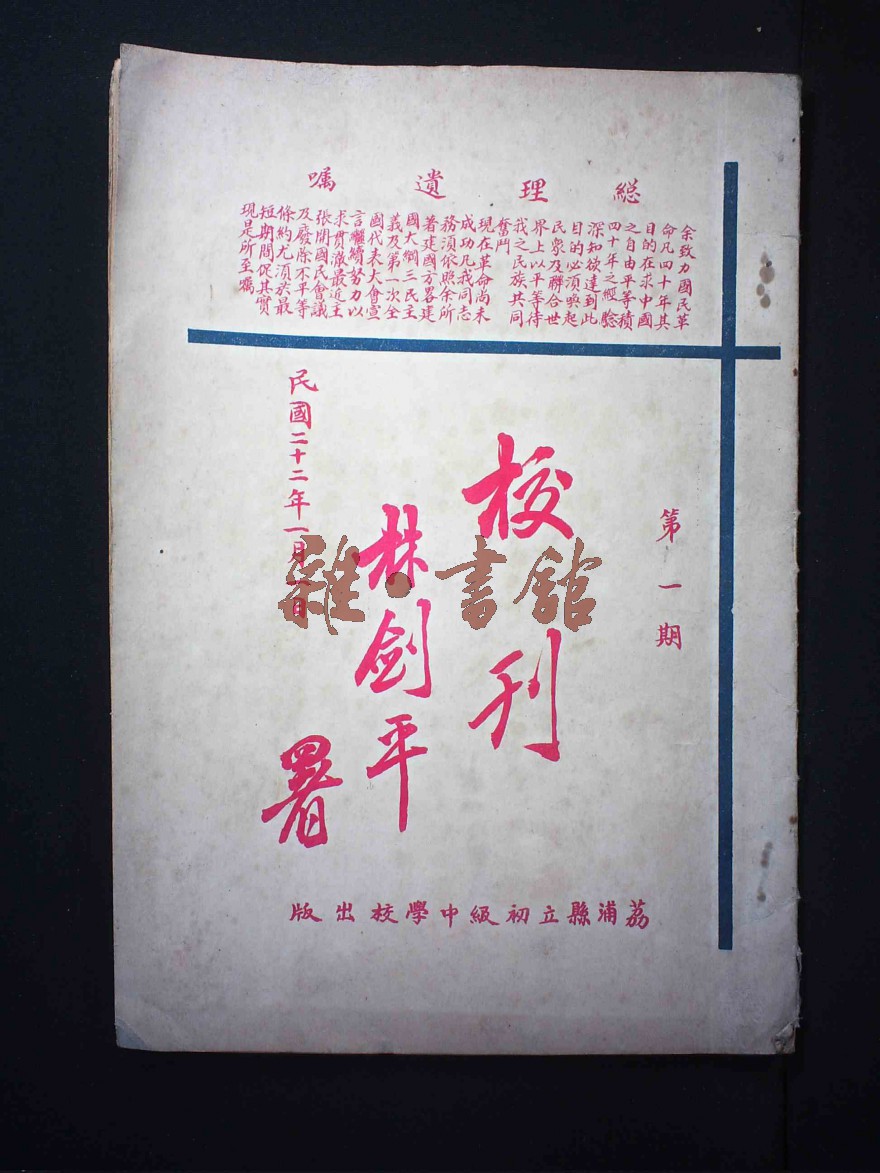 総理遺囑
余致力國民革
命凡四十年其
目的在求中國
之自由平等積
四十年之經驗
深知欲達到此
目的必須喚起
民衆及聯合世
界上以平等待
我之民族共同
奮鬥
現在革命尚未
成功凡我同志
務須依照余所
著建國方畧建
國大綱三民主
義及第一次全
國代表大會宣
言繼續努力以
求貫澈最近主
張開國民會議
及廢除不平等
條約尤須扵最
短期間促其實
現是所至囑
第一期
校刊
林劍平
署
民國二十二年一月一日
雜·書館
荔浦縣立初級中學校出版